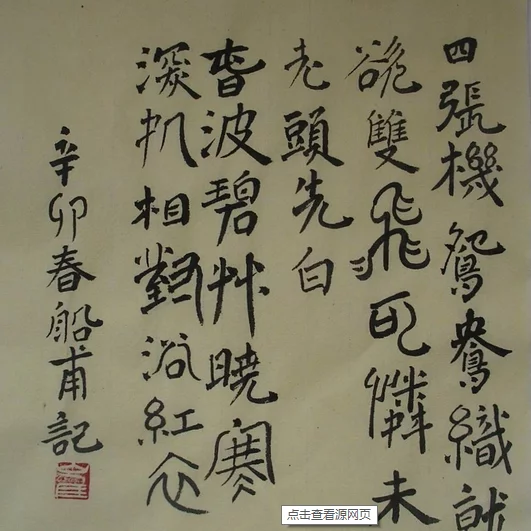 四張機鴛鴦織就
欲雙飛可憐未
老頭先白
春波碧艸曉寒
深処相對浴紅衣
辛卯春船甫記
点击查看源网页